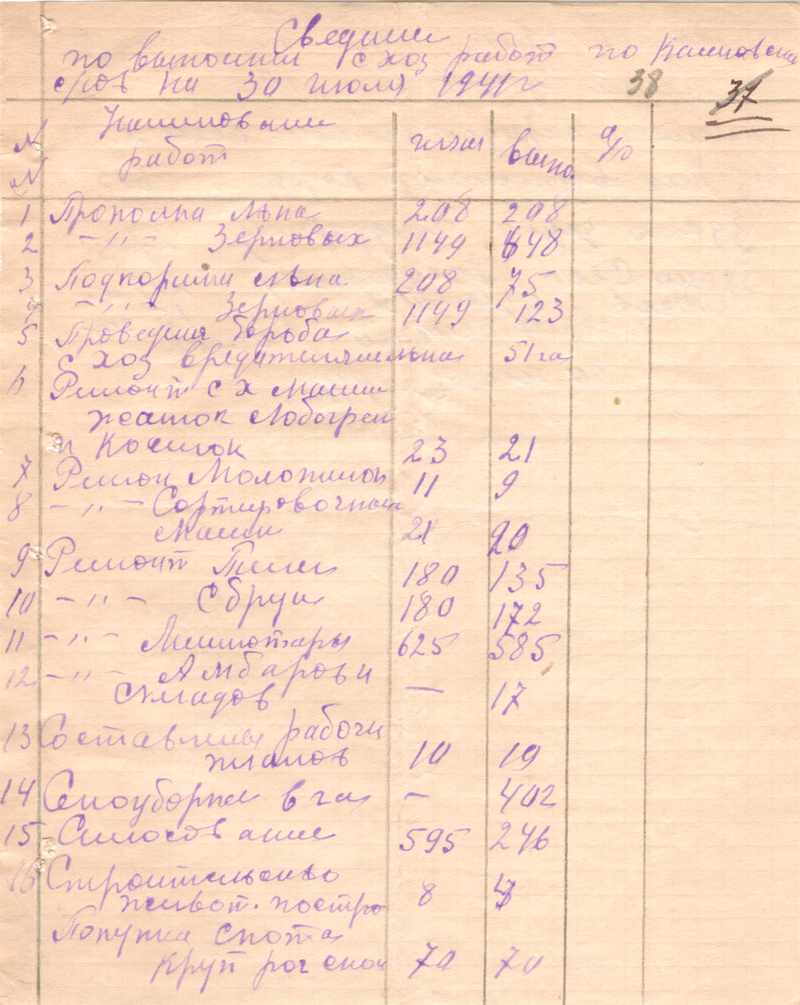 Сведения
по выполнени с хоз работ по Калиновском
с/сов на 30 июля 1941 г
38 37
N N Наименование работ план выпол. %
1 Прополка льна 208 208
2 -"- Зерновых 1149 648
3 Подкормка льна 208 75
4 -"- Зерновых 1149 123
5 Проведена борьба
с хоз вредителями льна 51 га
6 Ремонт с х машин
жаток лобогреек
и Косилок 23 21
7 Ремон Молотилок 11 9
8 -"- Сортировочных
машин 21 20
9 Ремонт Телег 180 135
10 -"- Сбруи 180 172
11 -"- Мешкотары 625 585
12 -"- Амбаров и
складов — 17
13 Составлены рабочи
планов 10 19
14 Сеноуборка в га — 402
15 Силосование 595 246
16 Строительство
живот. постро 8
Покупка скота
круп рог скот 70 70